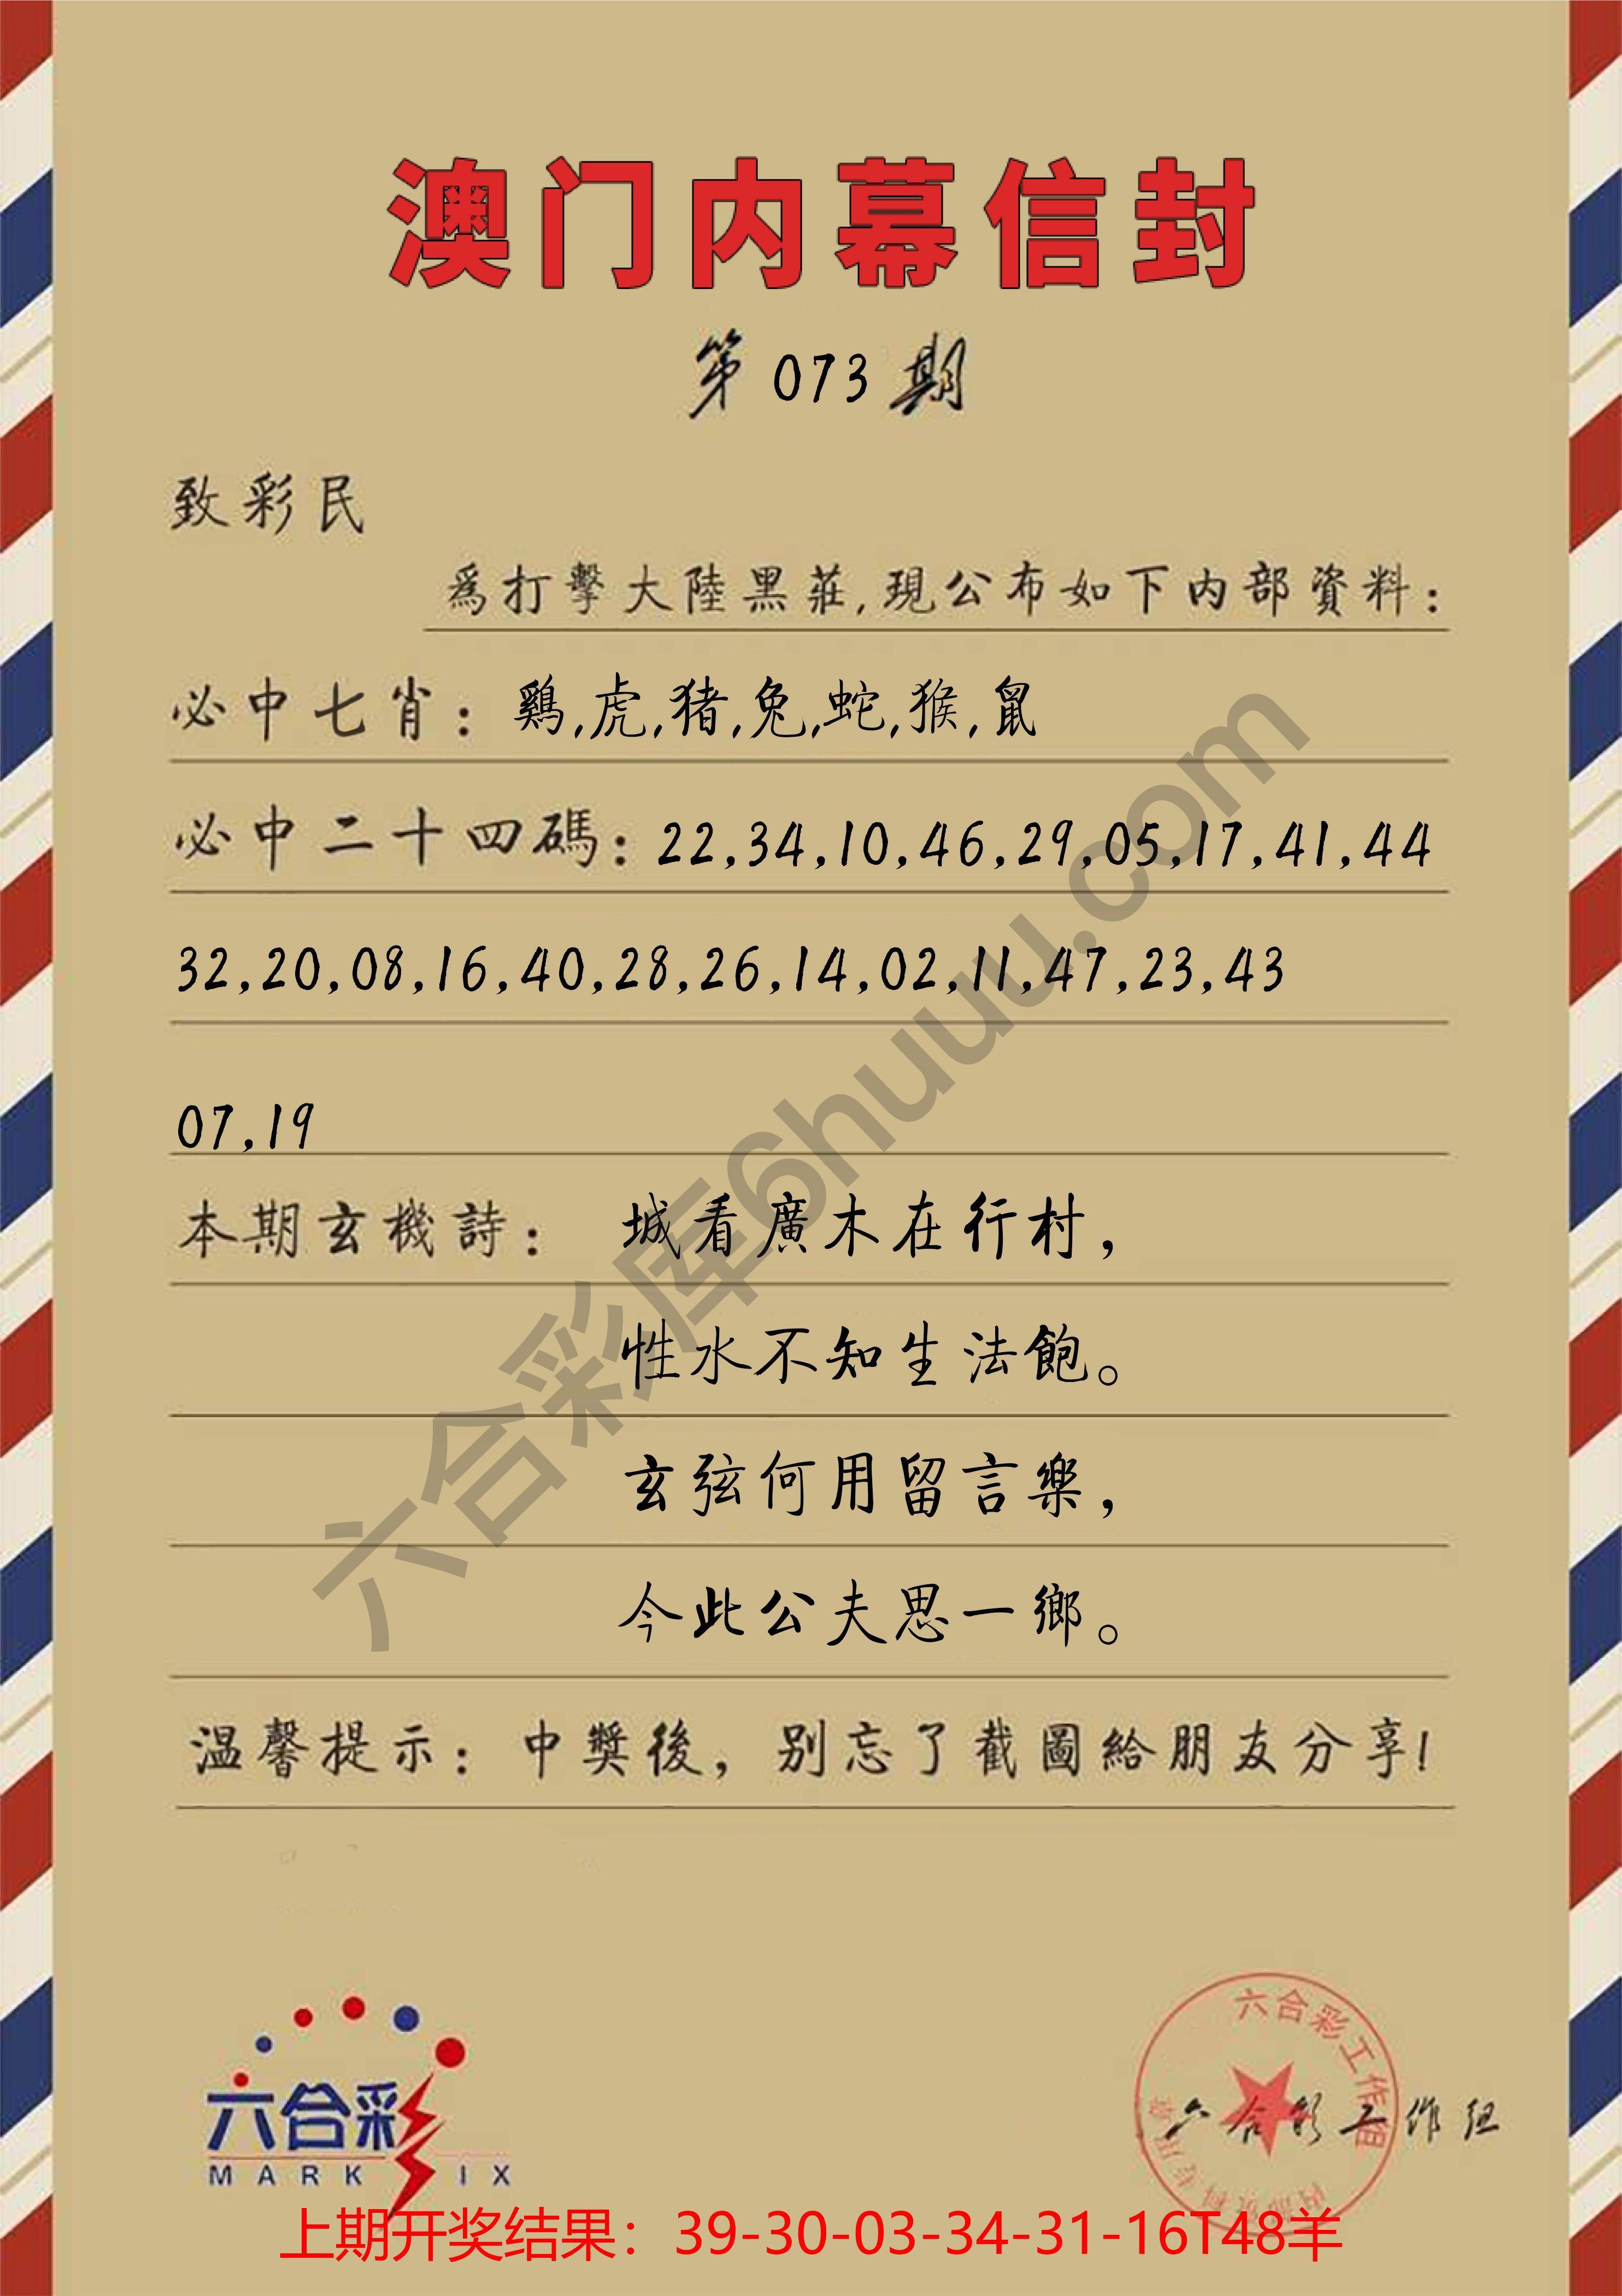 澳门内幕信封
第073期
致彩民
爲打擊大陸黑莊,現公布如下内部資料:
必中七肖: 鷄,虎,猪,兔,蛇,猴,鼠
必中二十四碼: 22,34,10,46,29,05,17,41,44
32,20,08,16,40,28,26,14,02,11,47,23,43
07,19
本期玄機詩: 城看廣木在行村,
性水不知生法飽。
玄弦何用留言樂,
今此公夫思一鄉。
温馨提示: 中獎後,别忘了截圖給朋友分享!
六合彩库6huuu.com
六合彩
MARK SIX
六合彩工作组
六合彩工作组
上期开奖结果：39-30-03-34-31-16T48羊